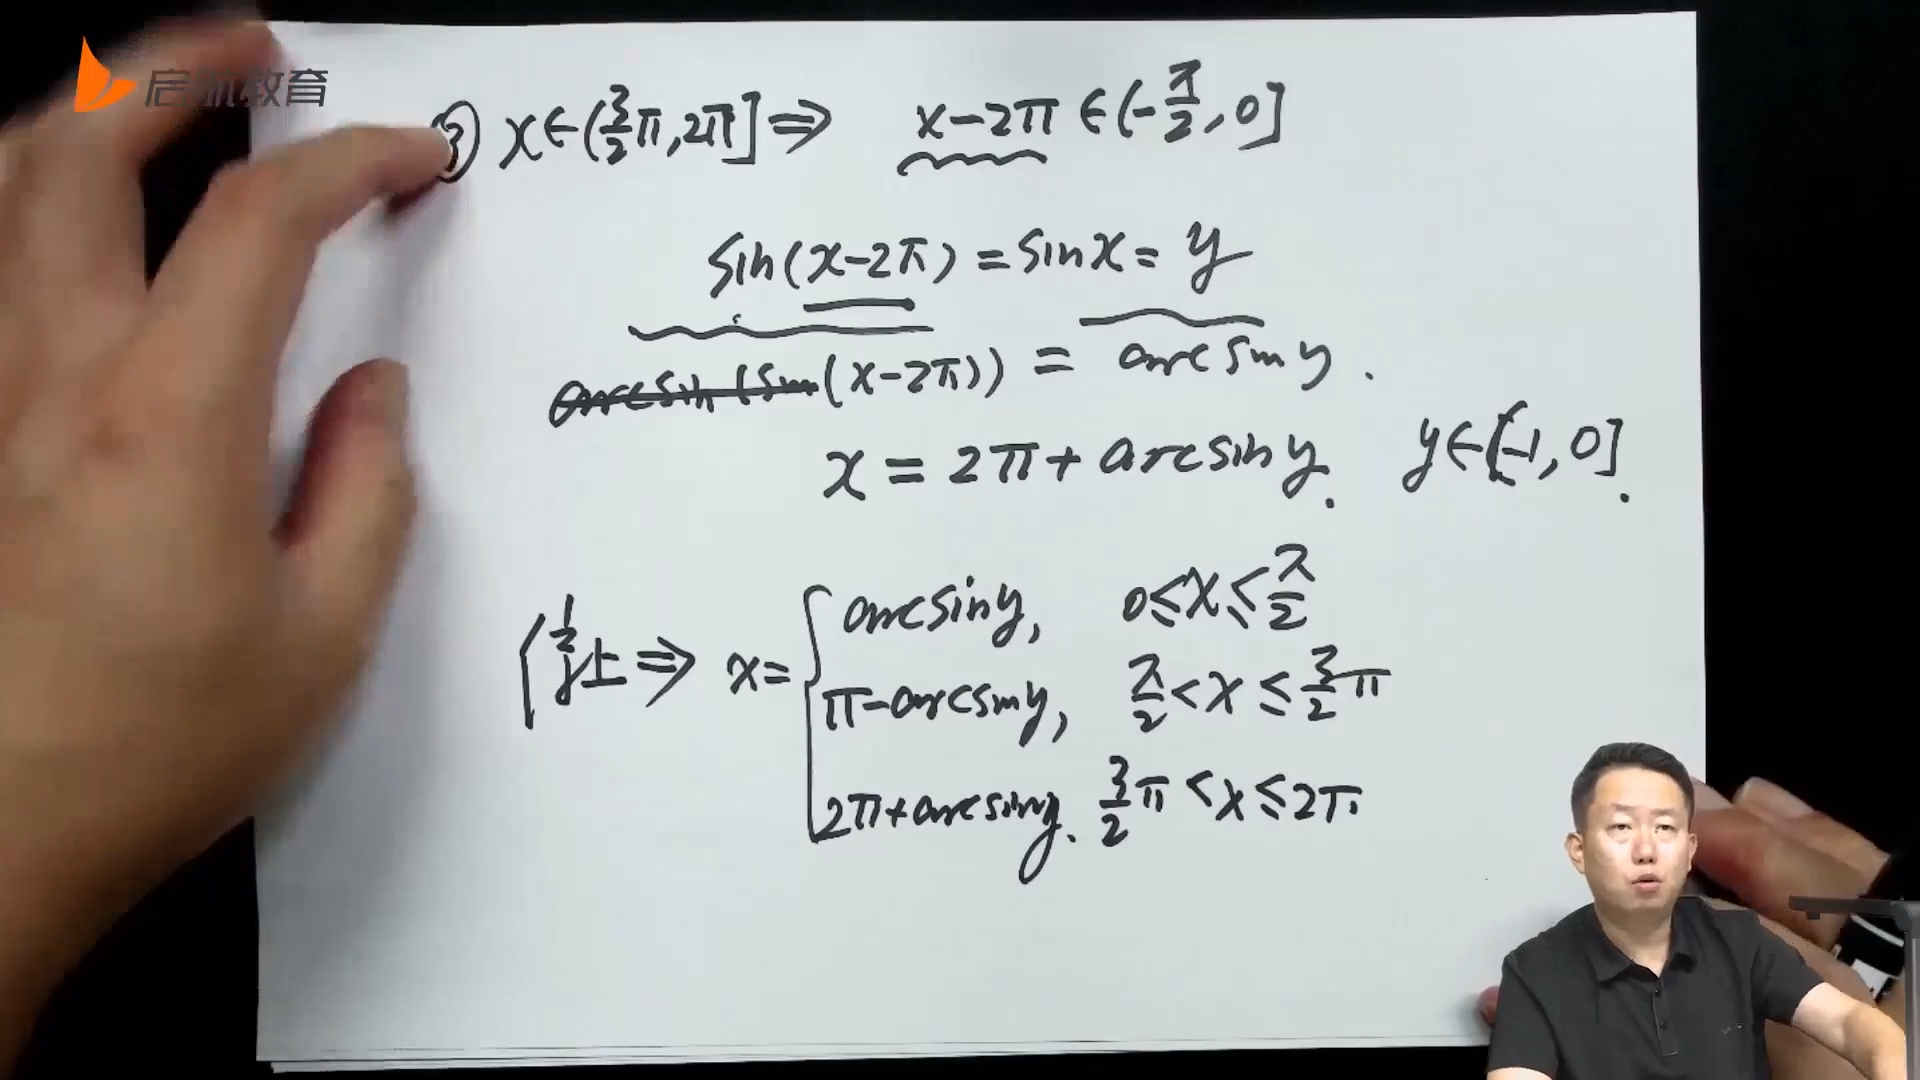 启航教育
③ x∈(3/2π,2π] ⇒ x-2π∈(-π/2,0]
sin(x-2π)=sinx=y
arcsin(sin(x-2π))=arcsiny.
x=2π+arcsiny. y∈[-1,0].
上⇒ x={arcsiny, 0≤x≤π/2
π-arcsiny, π/2<x≤3/2π
2π+arcsiny. 3/2π<x≤2π